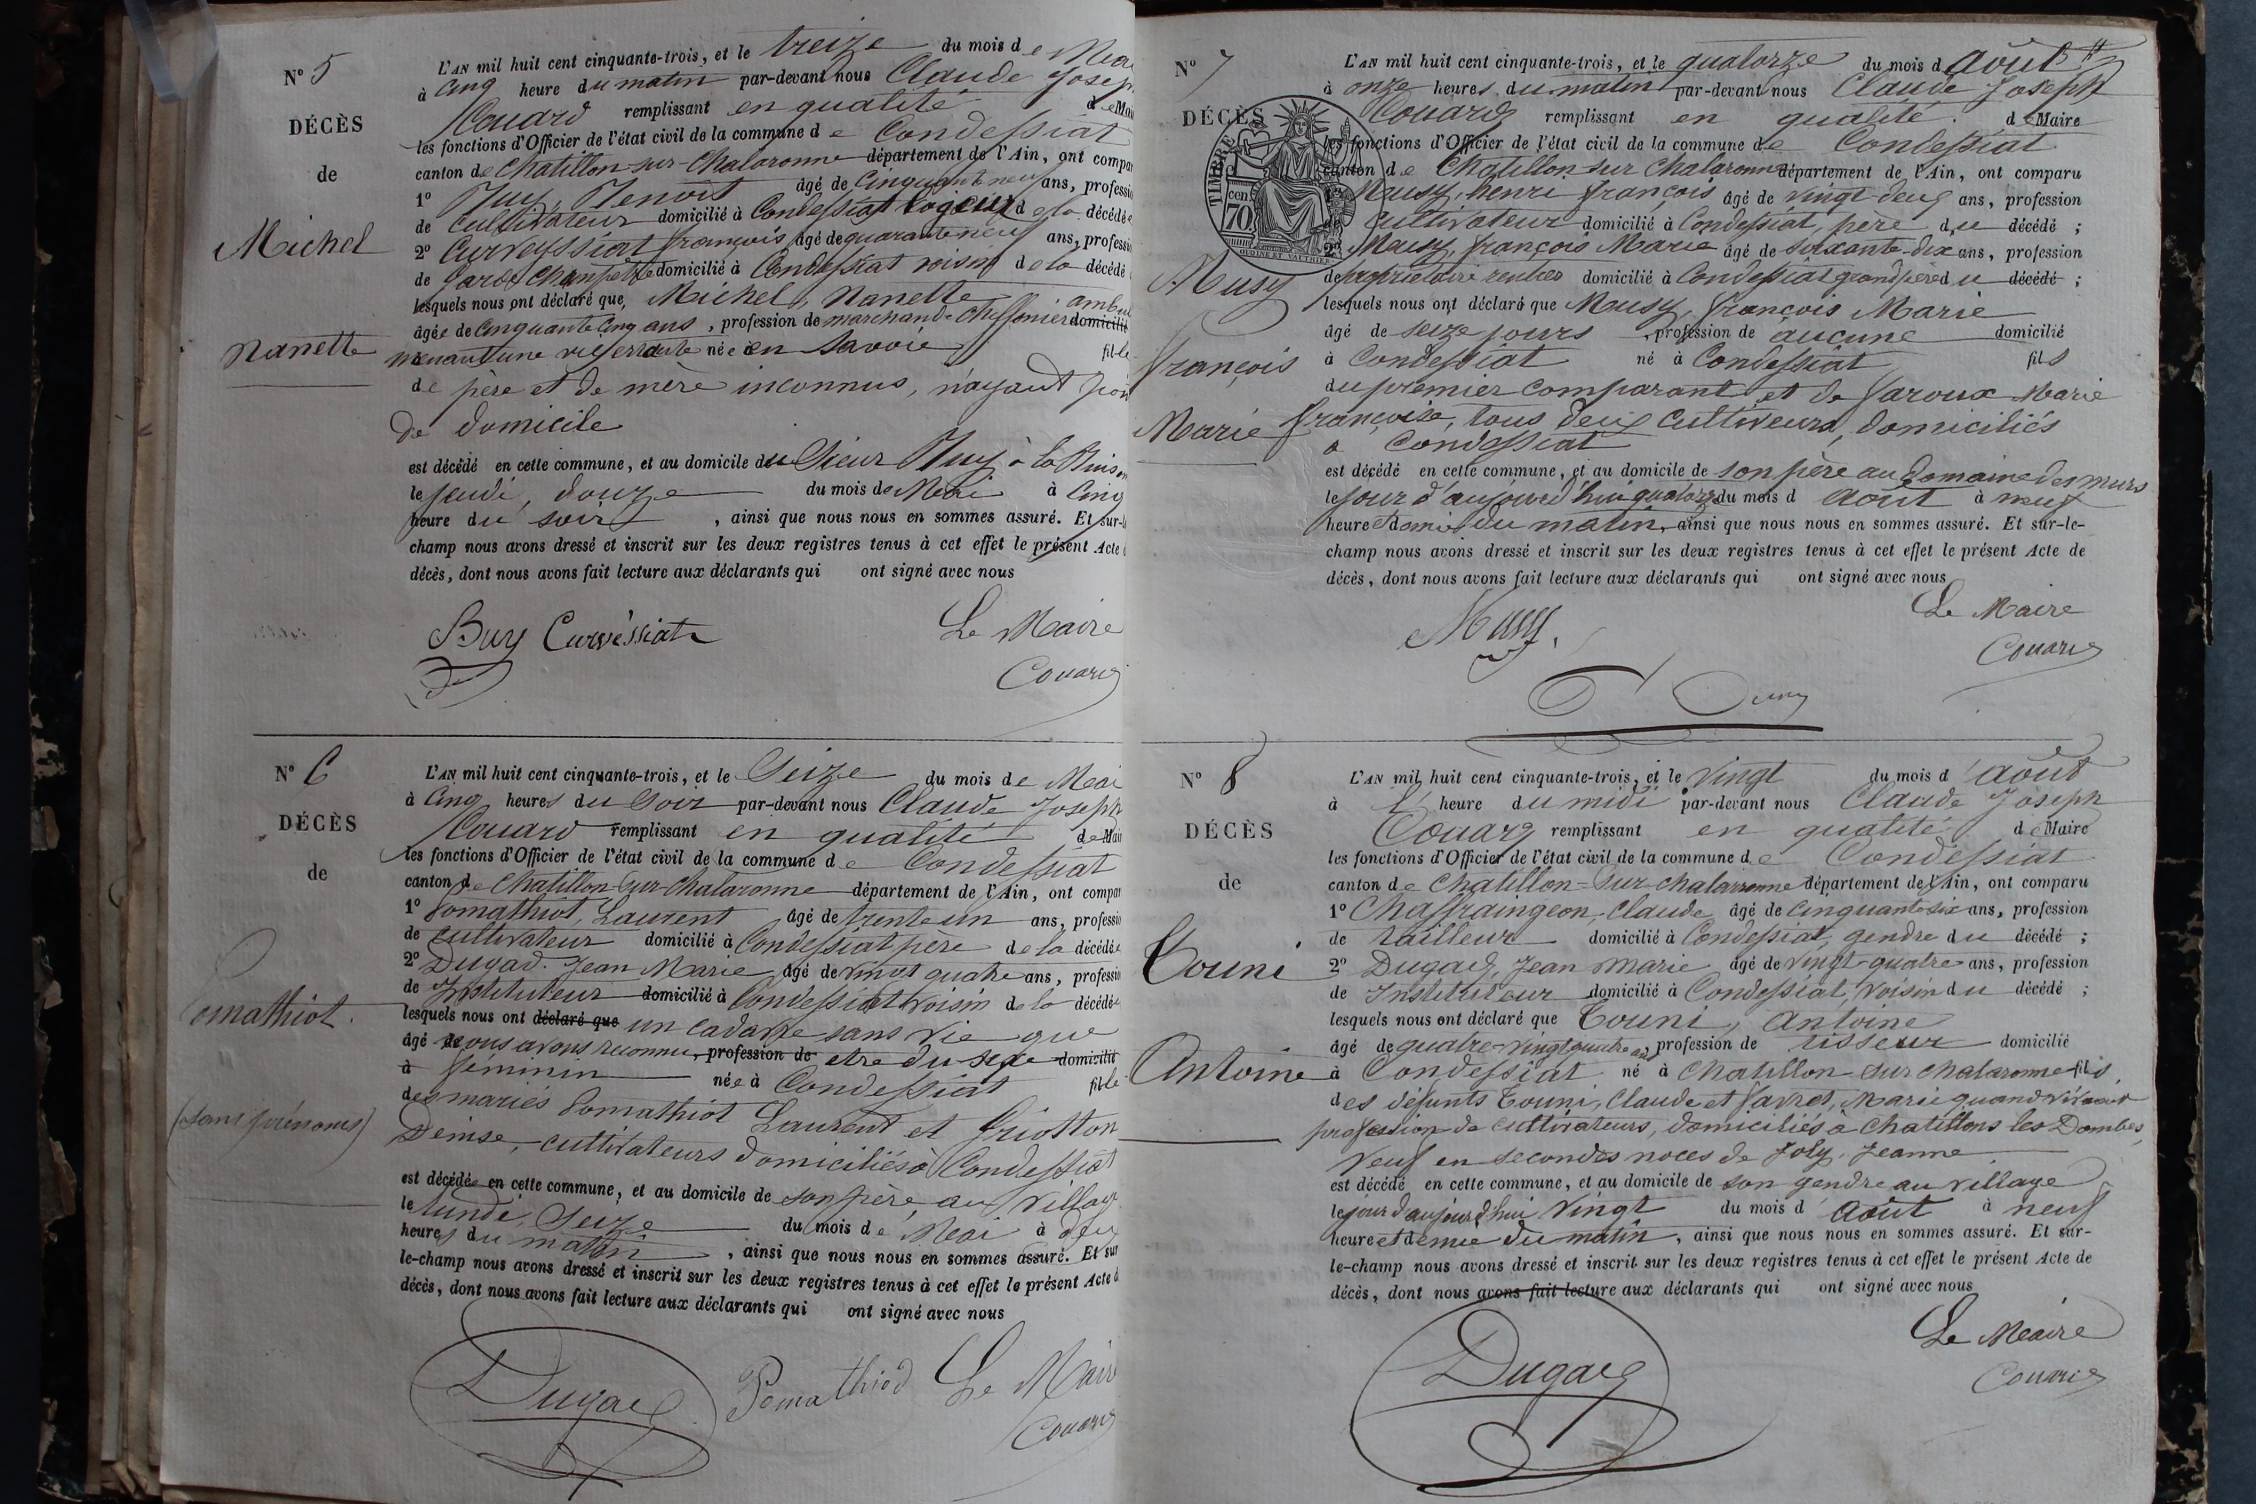 N° 5
DÉCÈS
de
Michel
Nanette
L'AN mil huit cent cinquante-trois, et le treize du mois de Mai
à cinq heure du matin par-devant nous Claude Joseph
Couard remplissant en qualité de Maire
les fonctions d'Officier de l'état civil de la commune de Condessiat
canton de Chatillon-sur-Chalaronne département de l'Ain, ont compar
1° Buy, Benoit âgé de cinquante neuf ans, professi
de cultivateur domicilié à Condessiat logeur de la décédée
2° Curveyssiat françois, âgé de quarante neuf ans, professi
de garde champêtre domicilié à Condessiat voisin de la décédé
lesquels nous ont déclaré que, Michel, Nanette
âgée de cinquante cinq ans, profession de marchande Chiffonier ambul domicilié
menant une vie errante née en Savoie fille
de père et de mère inconnus, n'ayant poin
de domicile
est décédé en cette commune, et au domicile du Sieur Buy à la
le jeudi, douze du mois de Mai à cinq
heure du soir, ainsi que nous nous en sommes assuré. Et sur-le
champ nous avons dressé et inscrit sur les deux registres tenus à cet effet le présent Acte d
décès, dont nous avons fait lecture aux déclarants qui ont signé avec nous
Buy Curvéssiat Le Maire
Couard
N° 6
DÉCÈS
de
omathiot.
(sans prénoms)
L'AN mil huit cent cinquante-trois, et le Seize du mois de Mai
à cinq heures du soir par-devant nous Claude Joseph
Couard remplissant en qualité de Mair
les fonctions d'Officier de l'état civil de la commune de Condessiat
canton de Chatillon-sur-Chalaronne département de l'Ain, ont compar
1° Pomathiot, Laurent âgé de trente un ans, professio
de cultivateur domicilié à Condessiat père de la décédée
2° Dugad. Jean Marie âgé de vingt quatre ans, professio
de Instituteur domicilié à Condessiat voisin de la décédée
lesquels nous ont déclaré que un cadavre sans vie que
âgé de nous avons reconnu, profession de etre du sexe domicilié
à féminin née à Condessiat fille
des mariés Pomathiot Laurent et Griotton
Denise, cultivateurs domiciliés à Condessiat
est décédée en cette commune, et au domicile de son père, au village
le lundi, Seize du mois de Mai à deux
heures du matin, ainsi que nous nous en sommes assuré. Et sur
le-champ nous avons dressé et inscrit sur les deux registres tenus à cet effet le présent Acte d
décès, dont nous avons fait lecture aux déclarants qui ont signé avec nous
Dugad Pomathiod Le Maire
Couard
N° 7
DÉCÈS
TIMBRE
cen
70
OUDINE ET VAUTHIER
Musy
françois
Marie
L'AN mil huit cent cinquante-trois, et le quatorze du mois d'Août
à onze heures du matin par-devant nous Claude Joseph
Couard remplissant en qualité de Maire
les fonctions d'Officier de l'état civil de la commune de Condessiat
canton de Chatillon sur Chalaronne département de l'Ain, ont comparu
1° Musy, henri françois âgé de vingt-deux ans, profession
de cultivateur domicilié à Condessiat, père du décédé ;
2° Musy, françois Marie âgé de soixante-dix ans, profession
de propriétaire rentier domicilié à Condessiat grand père du décédé ;
lesquels nous ont déclaré que Musy, françois Marie
âgé de seize jours, profession de aucune domicilié
à Condessiat né à Condessiat fils
du premier comparant et de Marie
françoise, tous deux cultiveurs, domiciliés
à Condessiat
est décédé en cette commune, et au domicile de son père au domaine des murs
le jour d'aujourd'hui quatorze du mois d'août à neuf
heure et demie du matin, ainsi que nous nous en sommes assuré. Et sur-le-
champ nous avons dressé et inscrit sur les deux registres tenus à cet effet le présent Acte de
décès, dont nous avons fait lecture aux déclarants qui ont signé avec nous
Le Maire
Musy
Couard
N° 8
DÉCÈS
de
Touni
Antoine
L'AN mil huit cent cinquante-trois, et le Vingt du mois d'août
à l'heure du midi par-devant nous Claude Joseph
Couard remplissant en qualité de Maire
les fonctions d'Officier de l'état civil de la commune de Condessiat
canton de Chatillon-sur-chalaronne département de l'Ain, ont comparu
1° Chaffraingeon, Claude âgé de cinquante six ans, profession
de tailleur domicilié à Condessiat, gendre du décédé ;
2° Dugad, Jean Marie âgé de vingt-quatre ans, profession
de Instituteur domicilié à Condessiat, voisin du décédé ;
lesquels nous ont déclaré que Touni, Antoine
âgé de quatre-vingt quatre ans, profession de tisseur domicilié
à Condessiat né à Chatillon-sur chalaronne fils
des défunts Touni, Claude et Marie quand vivaient
profession de cultivateurs, domiciliés à Chatillons les Dombes,
Veuf en secondes noces de Joly, Jeanne
est décédé en cette commune, et au domicile de son gendre au village
le jour d'aujourd'hui Vingt du mois d'août à neuf
heure et demie du matin, ainsi que nous nous en sommes assuré. Et sur-
le-champ nous avons dressé et inscrit sur les deux registres tenus à cet effet le présent Acte de
décès, dont nous avons fait lecture aux déclarants qui ont signé avec nous
Le Maire
Dugad
Couard